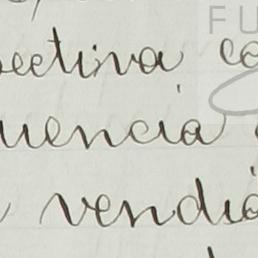 pectiva co
uencia
vendio